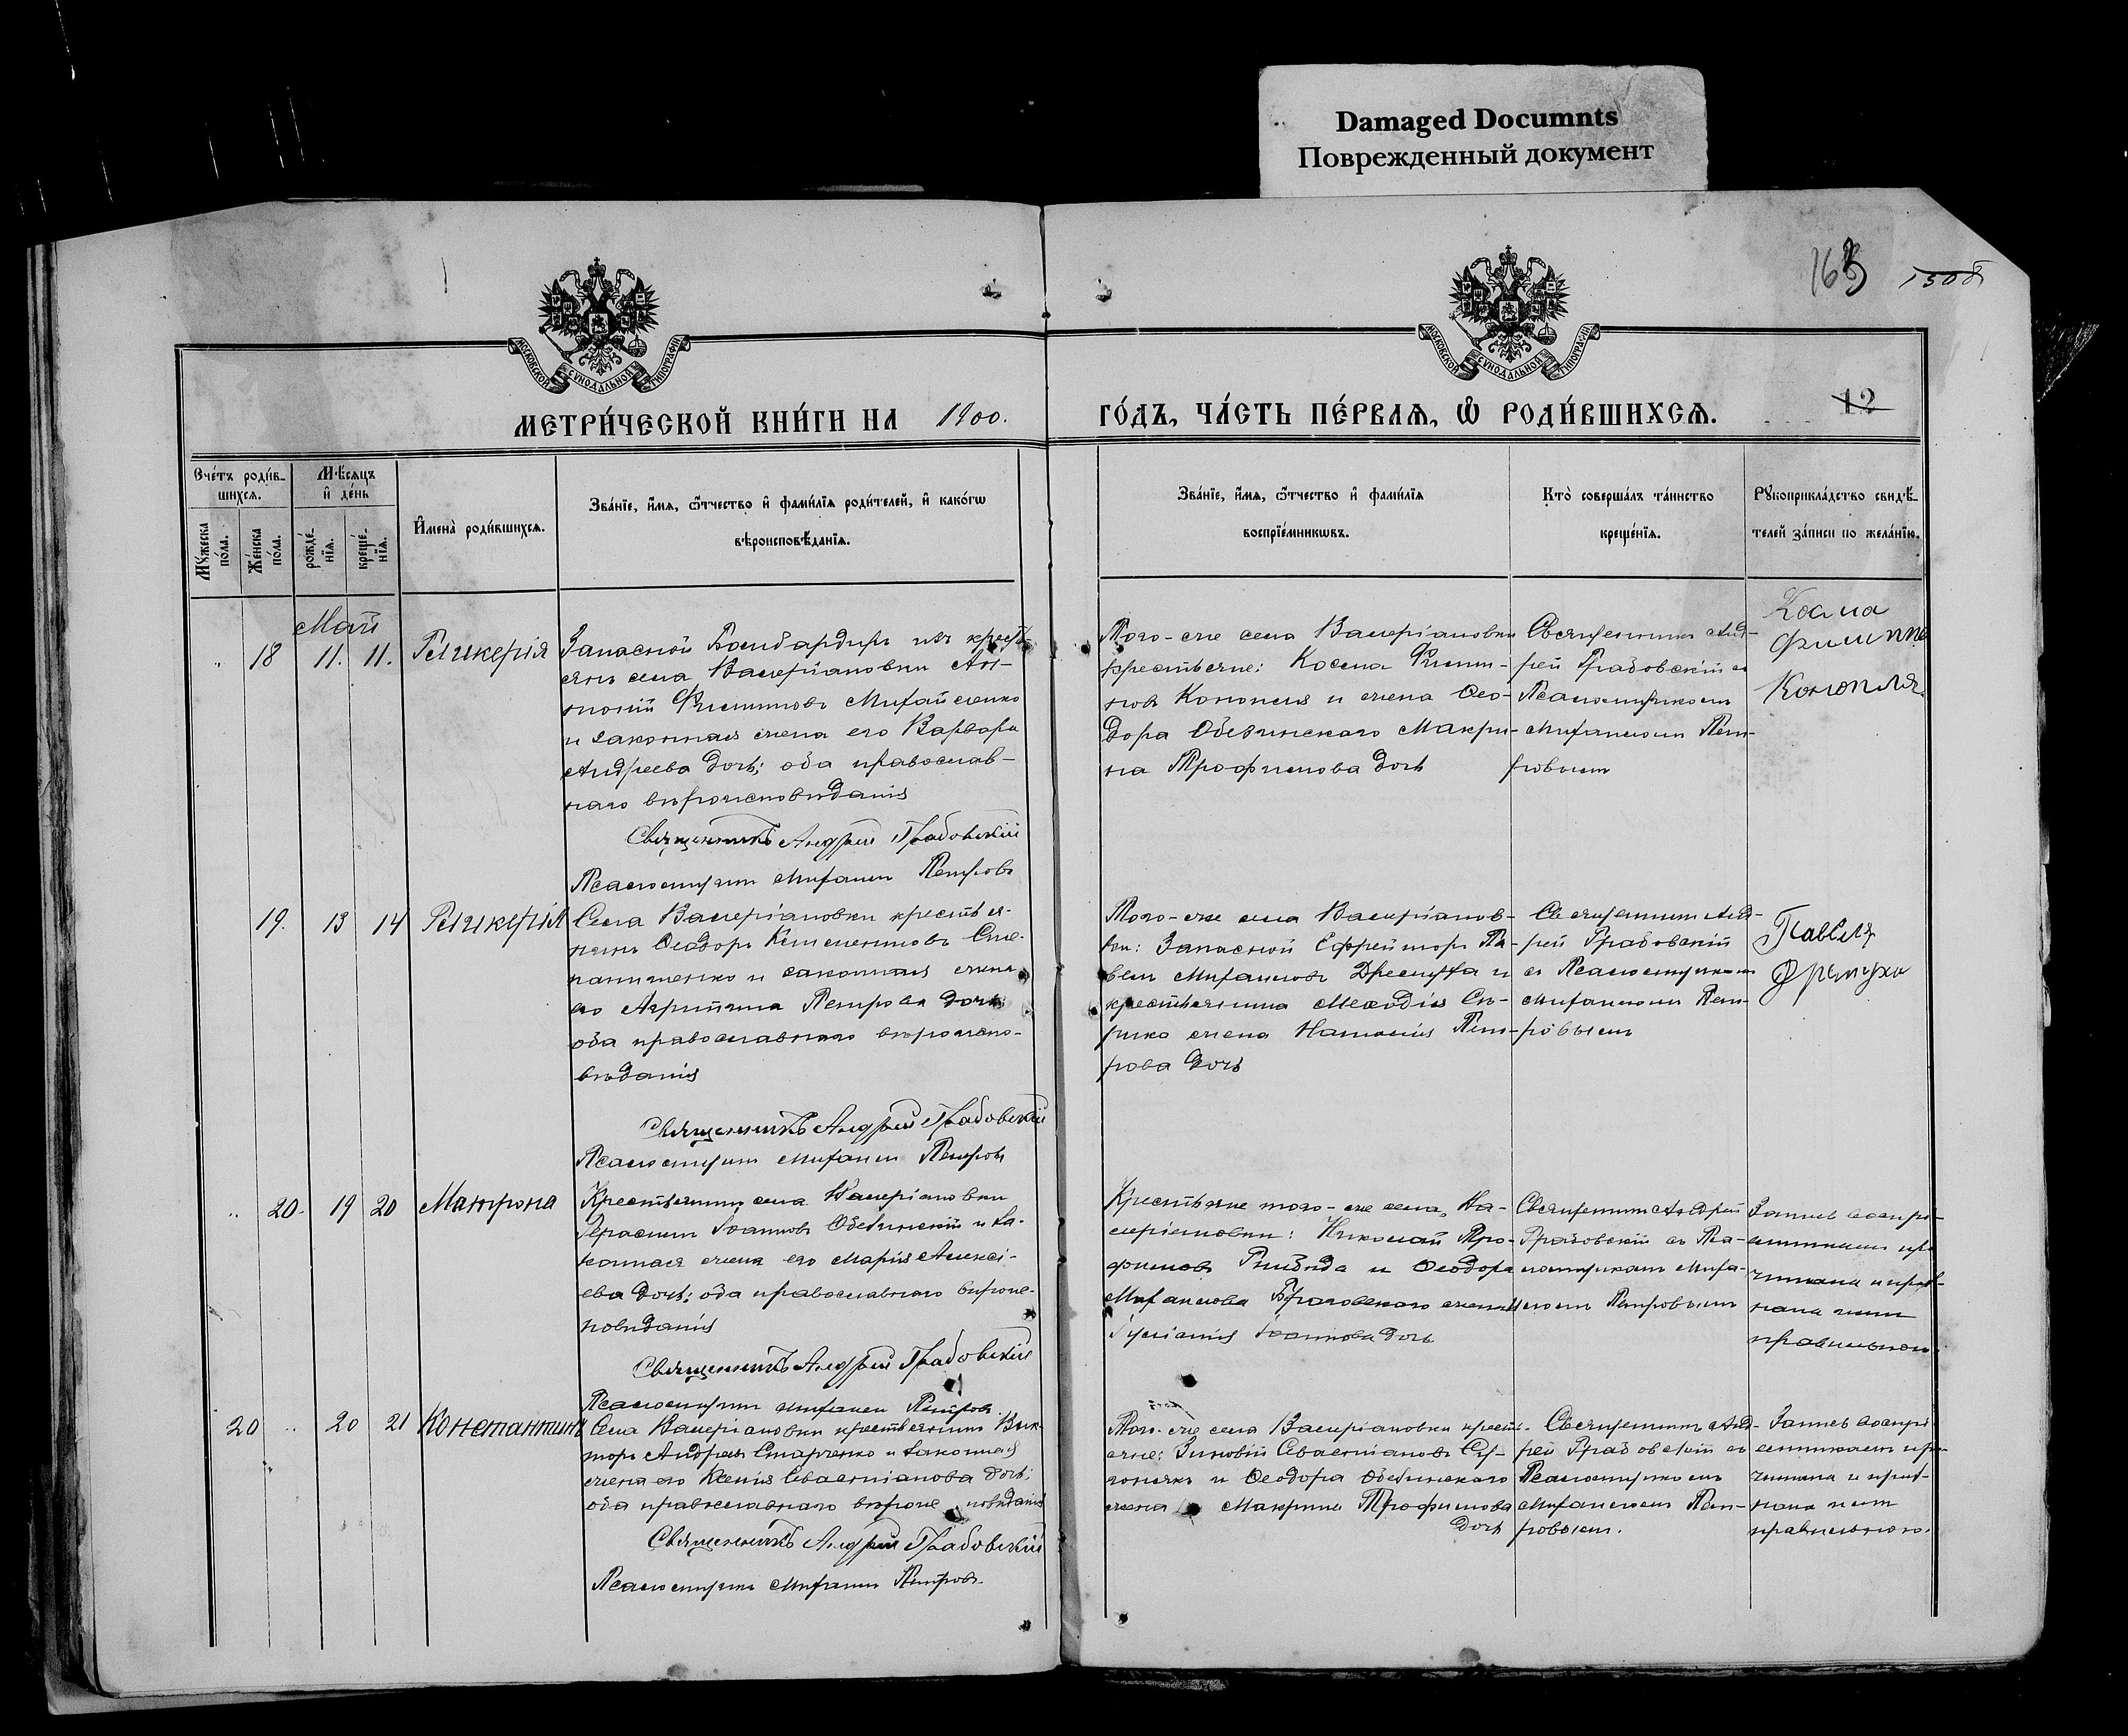 Damaged Documnts
Поврежденный документ
163
МОСКОВСКОЙ СУНОДАЛЬНОЙ ТИПОГРАФІИ
МОСКОВСКОЙ СУНОДАЛЬНОЙ ТИПОГРАФІИ
МЕТРИ́ЧЕСКОЙ КНИ́ГИ НА 1900.
ГО́ДЪ, ЧА́СТЬ ПЕ́РВАЯ, Ѡ РОДИ́ВШИХСЯ.
12
Сче́тъ роди́в-
шихся.
Мѣ́сяцъ
и де́нь
Мꙋ́жеска по́ла.
Же́нска по́ла.
рожде́-нїя.
креще́-нїя.
Имена̀ роди́вшихся.
Зва́нїе, и́мя, ѻ́тчество и фами́лїя роди́телей, и како́гѡ
вѣроисповѣ́данїя.
Зва́нїе, и́мя, ѻ́тчество и фами́лїя
воспрїе́мникѡвъ.
Кто̀ соверша́лъ та́инство
креще́нїя.
Рꙋкоприкла́дство свидѣ́-
телей за́писи по жела́нїю.
Май
18 11. 11. Гликерія
Запасной Бомбардиръ изъ кресть-
янъ села Валеріановки Ан-
тоній Филиповъ Михайленко
и законная жена его Варвара
Андреева дочь; оба православ-
наго вѣроисповѣданія
Священникъ Андрей Грабовскій
Псаломщикъ Михаилъ Петровъ
Того-же села Валеріановки
крестьяне: Косма Филип-
повъ Конопля и жена Ѳео-
дора Обезинскаго Макри-
на Трофимова дочь
Священникъ Анд-
рей Грабовскій съ
Псаломщикомъ
Михаиломъ Пет-
ровымъ
Косма
Филиппо
Конопля
19. 13 14 Гликерія
Села Валеріановки крестья-
нинъ Ѳеодоръ Климентовъ Сте-
паненко и законная жена
его Агрипина Петрова дочь;
оба православнаго вѣроиспо-
вѣданія
Священникъ Андрей Грабовскій
Псаломщикъ Михаилъ Петровъ
Того-же села Валеріанов-
ки: Запасной Ефрейторъ Па-
велъ Михаиловъ Дремуха и
крестьянина Меѳодія Сѣ-
рика жена Наталія Пет-
рова дочь
Священникъ Анд-
рей Грабовскій
съ Псаломщикомъ
Михаиломъ Пет-
ровымъ
Павелъ
Дремуха
20. 19 20 Матрона
Крестьянинъ села Валеріановки
Герасимъ Іоанновъ Обезинскій и за-
конная жена его Марія Алексі-
ева дочь; оба православнаго вѣроис-
повѣданія
Священникъ Андрей Грабовскій
Псаломщикъ Михаилъ Петровъ
Крестьяне того-же села Ва-
леріановки: Николай Тро-
фимовъ и Ѳеодора
Михаилова жена
Іуліанія Іоаннова дочь
Священникъ Андрей
Грабовскій съ Пса-
ломщикомъ Миха-
иломъ Петровымъ
Запись воспрі-
емникамъ про-
читана и приз-
нана ими
правильною.
20 20 21 Константинъ
Села Валеріановки крестьянинъ Вик-
торъ Андреевъ Старченко и законная
жена его Ксенія Севастіанова дочь;
оба православнаго вѣроисповѣданія
Священникъ Андрей Грабовскій
Псаломщикъ Михаилъ Петровъ.
Того-же села Валеріановки кресть-
яне: Зиновій Севастіановъ
и Ѳеодора Обезинскаго
жена Макрина Трофимова
дочь
Священникъ Анд-
рей Грабовскій съ
Псаломщикомъ
Михаиломъ Пет-
ровымъ.
Запись воспрі-
емникамъ про-
читана и приз-
нана ими
правильною.